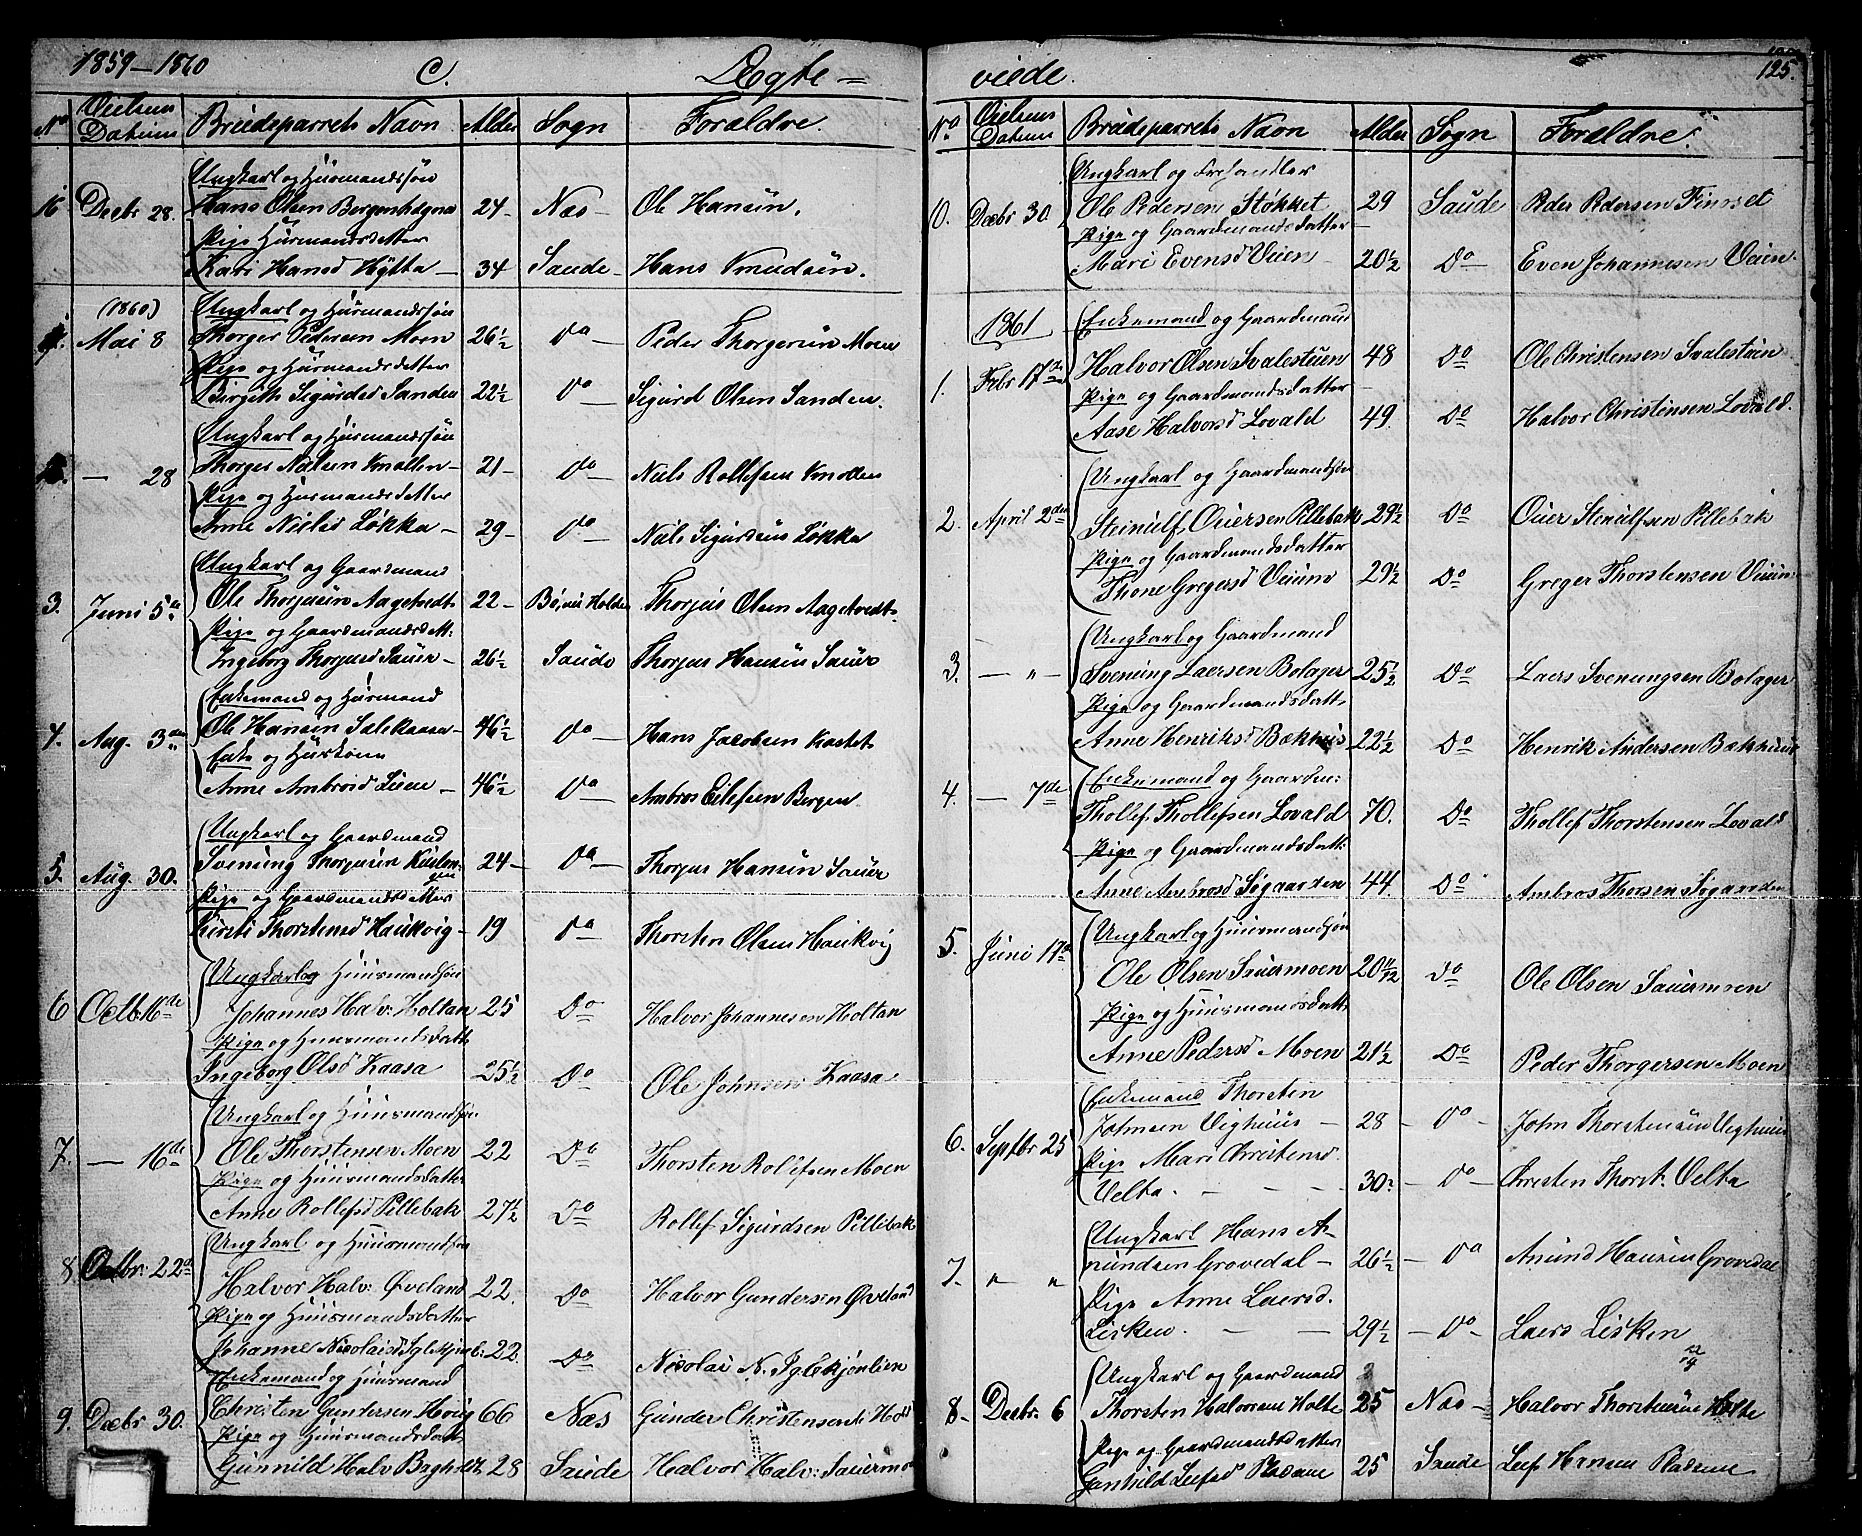 1859-1860 C. Ægte=
No Vielsens Datum Brudeparrets Navn Alder Sogn Forældre.
Ungkarl og Huusmandssøn
16 Decbr 28. Hans Olsen 24- Næs- Ole Hansen.
Pige Huusmandsdatter
Kari Hansd Hytta- 34 Saude- Hans Knudsen.
(1860) Ungkarl og Huusmandssøn
Mai 8 Thorger Pedersen Moen 26½ Do- Peder Thorgersen Moen
Pige og Huusmandsdatter
Birgith Sigurdsd Sanden 22½ Do- Sigurd Olsen Sanden.
Ungkarl og Huusmandssøn
- 28 Thorger Nielsen Knatten- 21- Do- Niels Rollefsen Knatten
Pige og Huusmandsdatter
Anne Nielsd Løkka- 29- Do- Niels Sigurdsen Løkka
Ungkarl og Gaardmand
3. Juni 5te Ole Thorjusen Aagetvedt 22- Bø Thorjus Olsen Aagetvedt
Pige og Gaardmandsdatt:
Ingeborg Thorjusd Sauer- 26½ Saude Thorjus Hansen Sauer
Enkemand og Huusmand
4. Aug. 3die Ole Hansen Salekaasa- 46½ Do- Hans Jacobsen Kastet
Enke og Huuskone
Anne Ambrosd Liene- 46½ Do- Ambros Eilefsen Bergen
Ungkarl og Gaardmand
5. Aug 30. Svenung Thorjusen 24- Do- Thorjus Hansen Sauer
Pige og Gaardmandsdatter
Kirsti Thorstensd Haukvig- 19 Do- Thorsten Olsen Haukvig
Ungkarl og Huusmandssøn
6 Octb 16de Johannes Halv: Holtan 25 Do Halvor Johannesen Holtan
Pige og Huusmandsdatt:
Ingeborg Olsd Kaasa 25½ Do Ole Johnsen Kaasa
Ungkarl og Huusmandssøn
7. - 16de Ole Thorstensen Moen 22 Do Thorsten Rollefsen Moen
Pige og Huusmandsdatter
Anne Rollefsd Pillebak 27½ Do Rollef Sigurdsen Pillebak
Ungkarl og Huusmandssøn
8 Octbr: 22d Halvor Halv: Øveland 22. Do Halvor Gundersen Øveland
Pige og Huusmandsdatter
Johanne Nicolaisd Iglekjønl: 22. Do Nicolai N. Iglekjønlien
Enkemand og Huusmand
9. Decbr 30. Christen Gundersen 66 Næs Gunder Christensen
Pige og Huusmandsdatt:
Gunnild Halv 28 Saude Halvor Halv: Sauermo
viede. 125.
No Vielsens Datum Brudeparrets Navn Alder Sogn Forældre.
Ungkarl og
10. Decbr 30. Ole Pedersen Støkket 29 Saude Peder Pedersen Finset
Pige og Gaardmandsdatter
Mari Evensd Veien 20½ Do Even Johannesen Veien
1861 Enkemand og Gaardmand
1. Febr 17de Halvor Olsen Svalestuen 48 Do Ole Christensen Svalestuen
Pige og Gaardmandsdatter
Aase Halvorsd Lovald 49. Do Halvor Christensen Lovald.
Ungkarl og Gaardmandssøn
2. April 2den Steinulf Ouersen Pillebak 29½ Do Ouer Steinulfsen Pillebak
Pige og Gaardmandsdatter
Thone Gregersd Veium 29½ Do Greger Thorstensen Veium
Ungkarl og Gaardmand
3. - " - Svenung Laersen Bolager 25½ Do Laers Svenungsen Bolager
Pige og Gaardmandsdatt:
Anne Henriksd Bakhus 22½ Do Henrik Andersen Bakhuus
Enkemand og Gaardm:
4. - 7de Thollef Thollefsen Lovald 70. Do Thollef Thorstensen Lovald
Pige og Gaardmandsdatt:
Anne Ambrosd Søgaarden 44. Do Ambros Thorsen Søgaarden
Ungkarl og Huusmandssøn
5. Juni 17de Ole Olsen Sauermoen 20 11/12 Do Ole Olsen Sauermoen
Pige og Huusmandsdatt:
Anne Pedersd Moen 21½ Do Peder Thorgersen Moen
Enkemand Thorsten
6. Septbr 25 Johnsen Veghuus- 28 - Do John Thorstensen Veghuus
Pige Mari Christensd.
Velta. - - - 30 - Do - Christen Thorst. Velta
Ungkarl Hans A-
7. " " nundsen Grovedal- 26½ - Do Anund Hansen Grovedal
Pige Anne Laersd.
Lisken. - - 29½ - Do- Laers Lisken
Ungkarl og Gaardmand
8- Decbr: 6 Thorsten Halvorsen Holte 25 Næs- Halvor Thorstensen Holte
Pige og Gaardmandsdatter
Gunhild Leifsd 25 Saude Leif Hansen